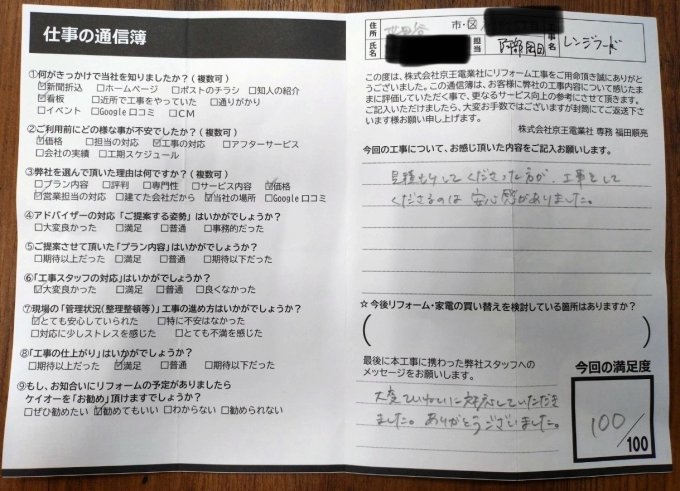 仕事の通信簿
①何がきっかけで当社を知りましたか?(複数可)
☑新聞折込 □ホームページ □ポストのチラシ □知人の紹介
☑看板 □近所で工事をやっていた □通りがかり
□イベント □Google口コミ □CM
②ご利用前にどの様な事が不安でしたか?(複数可)
☑価格 □担当の対応 ☑工事の対応 □アフターサービス
□会社の実績 □工期スケジュール
③弊社を選んで頂いた理由は何ですか?(複数可)
□プラン内容 □評判 □専門性 □サービス内容 ☑価格
☑営業担当の対応 □建てた会社だから ☑当社の場所 □Google口コミ
④アドバイザーの対応「ご提案する姿勢」はいかがでしょうか?
□大変良かった □満足 □普通 □事務的だった
⑤ご提案させて頂いた「プラン内容」はいかがでしょうか?
□期待以上だった □満足 □普通 □期待以下だった
⑥「工事スタッフの対応」はいかがでしょうか?
☑大変良かった □満足 □普通 □良くなかった
⑦現場の「管理状況(整理整頓等)」工事の進め方はいかがでしょうか?
☑とても安心していられた □特に不安はなかった
□対応に少しストレスを感じた □とても不満を感じた
⑧「工事の仕上がり」はいかがでしょうか?
□期待以上だった ☑満足 □普通 □期待以下だった
⑨もし、お知合いにリフォームの予定がありましたら
ケイオーを「お勧め」頂けますでしょうか?
□ぜひ勧めたい ☑勧めてもいい □わからない □勧められない
住所 世田谷 市・区
氏名 担当 阿部 岡田 事名 レンジフード
この度は、株式会社京王電業社にリフォーム工事をご用命頂き誠にありがと
うございました。この通信簿は、お客様に弊社の工事内容について感じたま
まに評価していただく事で、更なるサービス向上の参考にさせて頂きます。
ご記入いただけましたら、大変お手数ではございますが封筒にてご返送下さ
います様お願い申し上げます。
株式会社京王電業社 専務 福田順亮
今回の工事について、お感じ頂いた内容をご記入お願いします。
見積もりしてくださった方が、工事をして
くださるのは 安心感がありました。
☆今後リフォーム・家電の買い替えを検討している箇所はありますか?
( )
最後に本工事に携わった弊社スタッフへの
メッセージをお願いします。
大変ていねいに対応していただき
ました。ありがとうございました。
今回の満足度
100/100